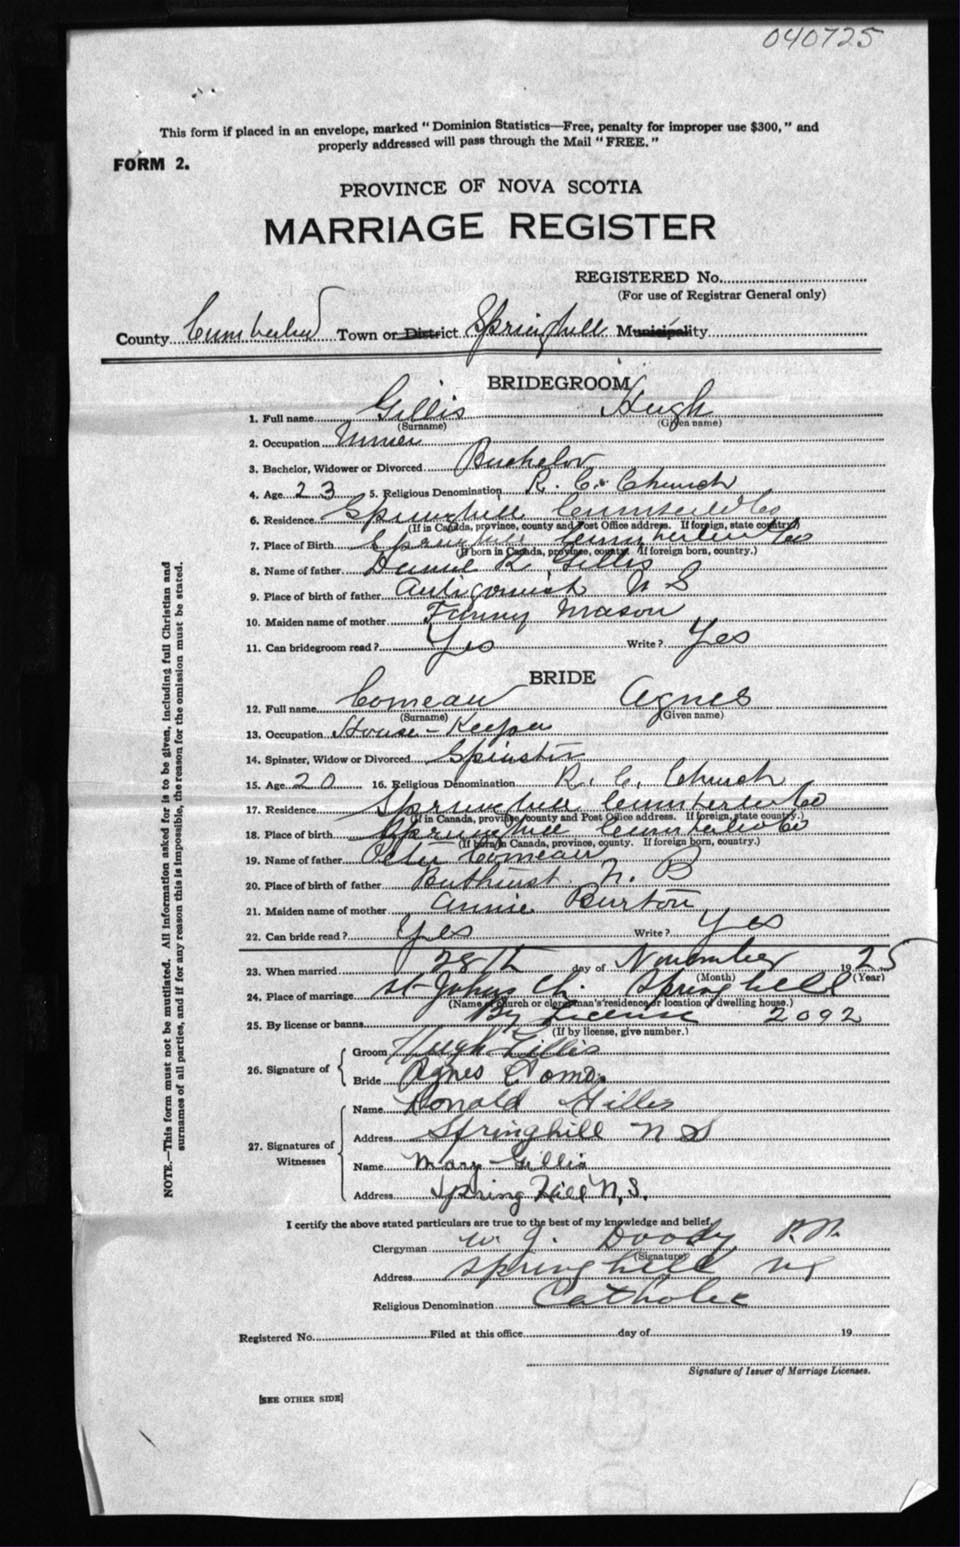 040725
This form if placed in an envelope, marked "Dominion Statistics—Free, penalty for improper use $300," and
properly addressed will pass through the Mail "FREE."
FORM 2.
PROVINCE OF NOVA SCOTIA
MARRIAGE REGISTER
REGISTERED No.
(For use of Registrar General only)
County Cumberland Town or District Springhill Municipality
BRIDEGROOM
1. Full name Gillis Hugh
(Surname) (Given name)
2. Occupation Miner
3. Bachelor, Widower or Divorced Bachelor
4. Age 23 5. Religious Denomination R. C. Church
6. Residence Springhill Cumberland Co
(If in Canada, province, county and Post Office address. If foreign, state country.)
7. Place of Birth Springhill Cumberland Co
(If born in Canada, province, county. If foreign born, country.)
8. Name of father R. Gillis
9. Place of birth of father Antigonish N S
10. Maiden name of mother Fanny Mason
11. Can bridegroom read? Yes Write? Yes
BRIDE
12. Full name Comeau Agnes
(Surname) (Given name)
13. Occupation House-Keeper
14. Spinster, Widow or Divorced Spinster
15. Age 20 16. Religious Denomination R. C. Church
17. Residence Springhill Cumberland Co
(If in Canada, province, county and Post Office address. If foreign, state country.)
18. Place of birth Springhill Cumberland Co
(If born in Canada, province, county. If foreign born, country.)
19. Name of father Peter Comeau
20. Place of birth of father Bathurst N. B
21. Maiden name of mother Annie Burton
22. Can bride read? Yes Write? Yes
23. When married 28th day of November 1925
(Month) (Year)
24. Place of marriage St Johns Ch. Springhill
(Name of church or clergyman's residence or location of dwelling house.)
25. By license or banns By License 2092
(If by license, give number.)
26. Signature of
Groom Hugh Gillis
Bride Agnes Como.
27. Signatures of Witnesses
Name Donald Gillis
Address Springhill N S
Name Mary Gillis
Address Spring Hill N.S.
I certify the above stated particulars are true to the best of my knowledge and belief,
Clergyman W. J. Doody P.P.
(Signature)
Address Springhill NS
Religious Denomination Catholic
Registered No. Filed at this office day of 19
Signature of Issuer of Marriage Licenses.
[SEE OTHER SIDE]
NOTE.—This form must not be mutilated. All information asked for is to be given, including full Christian and
surnames of all parties, and if for any reason this is impossible, the reason for the omission must be stated.